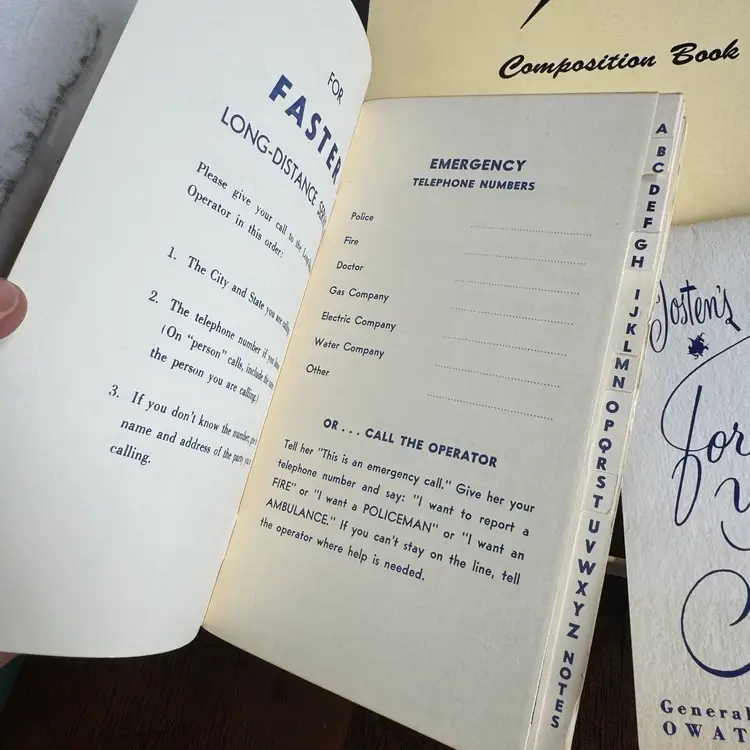 FOR
FASTER
LONG-DISTANCE
Please give your call to the
Operator in this order:
1. The City and State you are calling
2. The telephone number if you know
(On "person" calls, include the name
the person you are calling.)
3. If you don't know the number, give
name and address of the party you
calling.
EMERGENCY
TELEPHONE NUMBERS
Police
Fire
Doctor
Gas Company
Electric Company
Water Company
Other
OR . . . CALL THE OPERATOR
Tell her "This is an emergency call." Give her your
telephone number and say: "I want to report a
FIRE" or "I want a POLICEMAN" or "I want an
AMBULANCE." If you can't stay on the line, tell
the operator where help is needed.
A
B
C
D
E
F
G
H
I
J
K
L
M
N
O
P
Q
R
S
T
U
V
W
X
Y
Z
NOTES
Composition Book
Josten's
for
General
OWAT